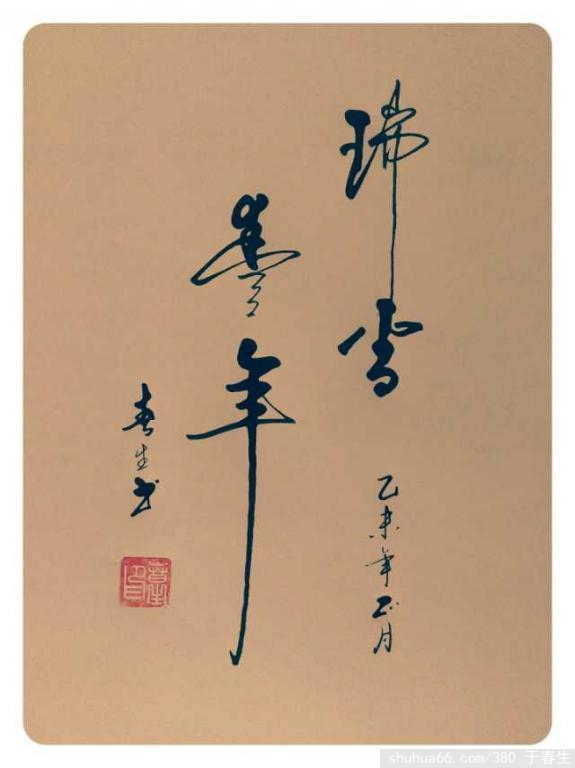 瑞雪
豐年
乙未年正月
春生书
shuhua66.com/380 于春生